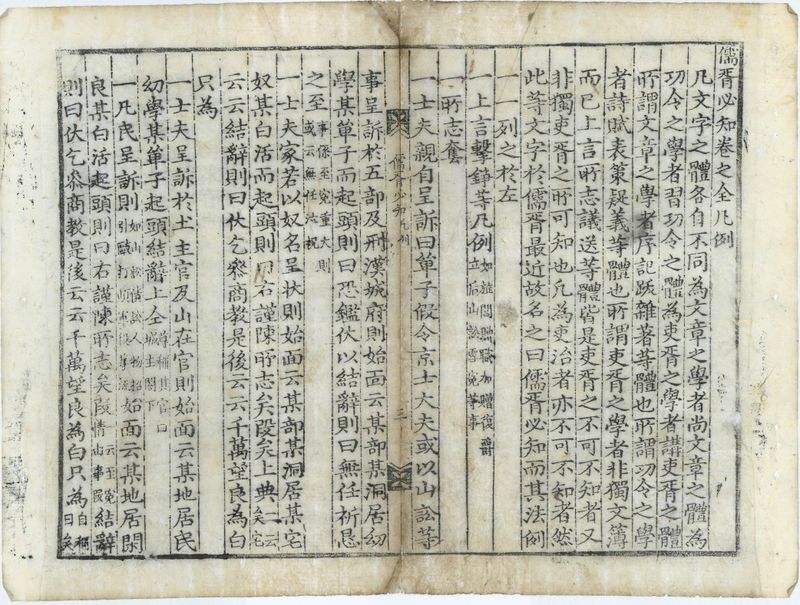 儒胥必知卷之全凡例
凡文字之體各自不同為文章之學者尚文章之體為
功令之學者習功令之體為吏胥之學者講吏胥之體
所謂文章之學者序記跋雜著等體也所謂功令之學
者詩賦表策疑義等體也所謂吏胥之學者非獨文簿
而已上言所志議送等體皆是吏胥之不可不知者又
非獨吏胥之所可知也凡為吏治者亦不可不知者然
此等文字於儒胥最近故名之曰儒胥必知而其法例
一一列之於左
一上言擊錚等凡例如旌閭贈職加贈復爵立后山訟雪寃等事
一所志套
一士夫親自呈訴曰單子假令京士大夫或以山訟等
儒胥必知凡例
三
事呈訴於五部及刑漢城府則始面云某部某洞居幼
學某單子而起頭則曰恐鑑伏以結辭則曰無任祈恳
之至事係至寃重大則或云無任泣祝
一士夫家若以奴名呈狀則始面云某部某洞居某宅
奴某白活而起頭則曰右謹陳所志矣段矣上典云云矣宅
云云結辭則曰伏乞叅商教是後云云千萬望良為白
只為
一士夫呈訴於土主官及山在官則始面云某地居民
幼學某單子起頭結辭上全城主閤下
一凡民呈訴則始面云某地居閑
良某白活起頭則曰右謹陳所志矣段情由事段云至寃結辭
則曰伏乞叅商教是後云云千萬望良為白只為自稱曰矣